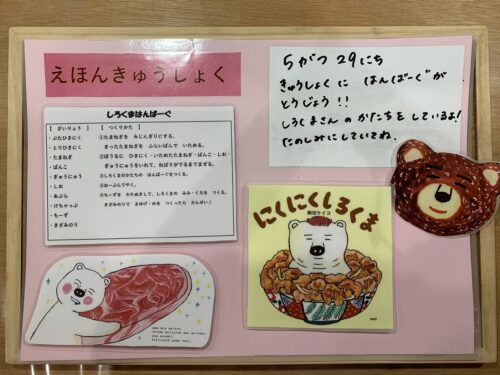 えほんきゅうしょく
5がつ 29にち
きゅうしょくに はんばーぐが
とうじょう！！
しろくまさんの かたちをしているよ！
たのしみにしていてね。
しろくまはんばーぐ
【 ざいりょう 】 【 つくりかた 】
・ぶたひきにく ①たまねぎを みじんぎりにする。
・とりひきにく きったたまねぎを ふらいぱんで いためる。
・たまねぎ ②ぼうるに ひきにく・いためたたまねぎ・ぱんこ・しお・
・ぱんこ ぎゅうにゅうをいれて、ねばりがでるまでまぜる。
・ぎゅうにゅう ③しろくまのかたちの はんばーぐをつくる。
・しお ④おーぶんでやく。
・あぶら ⑤ちーずを かたぬきして、しろくまの みみ・くちを つくる。
・けちゃっぷ きざみのりで まゆげ・めを つくったら かんせい♪
・ちーず
・きざみのり
にくにくしろくま
柴田ケイコ
PHP